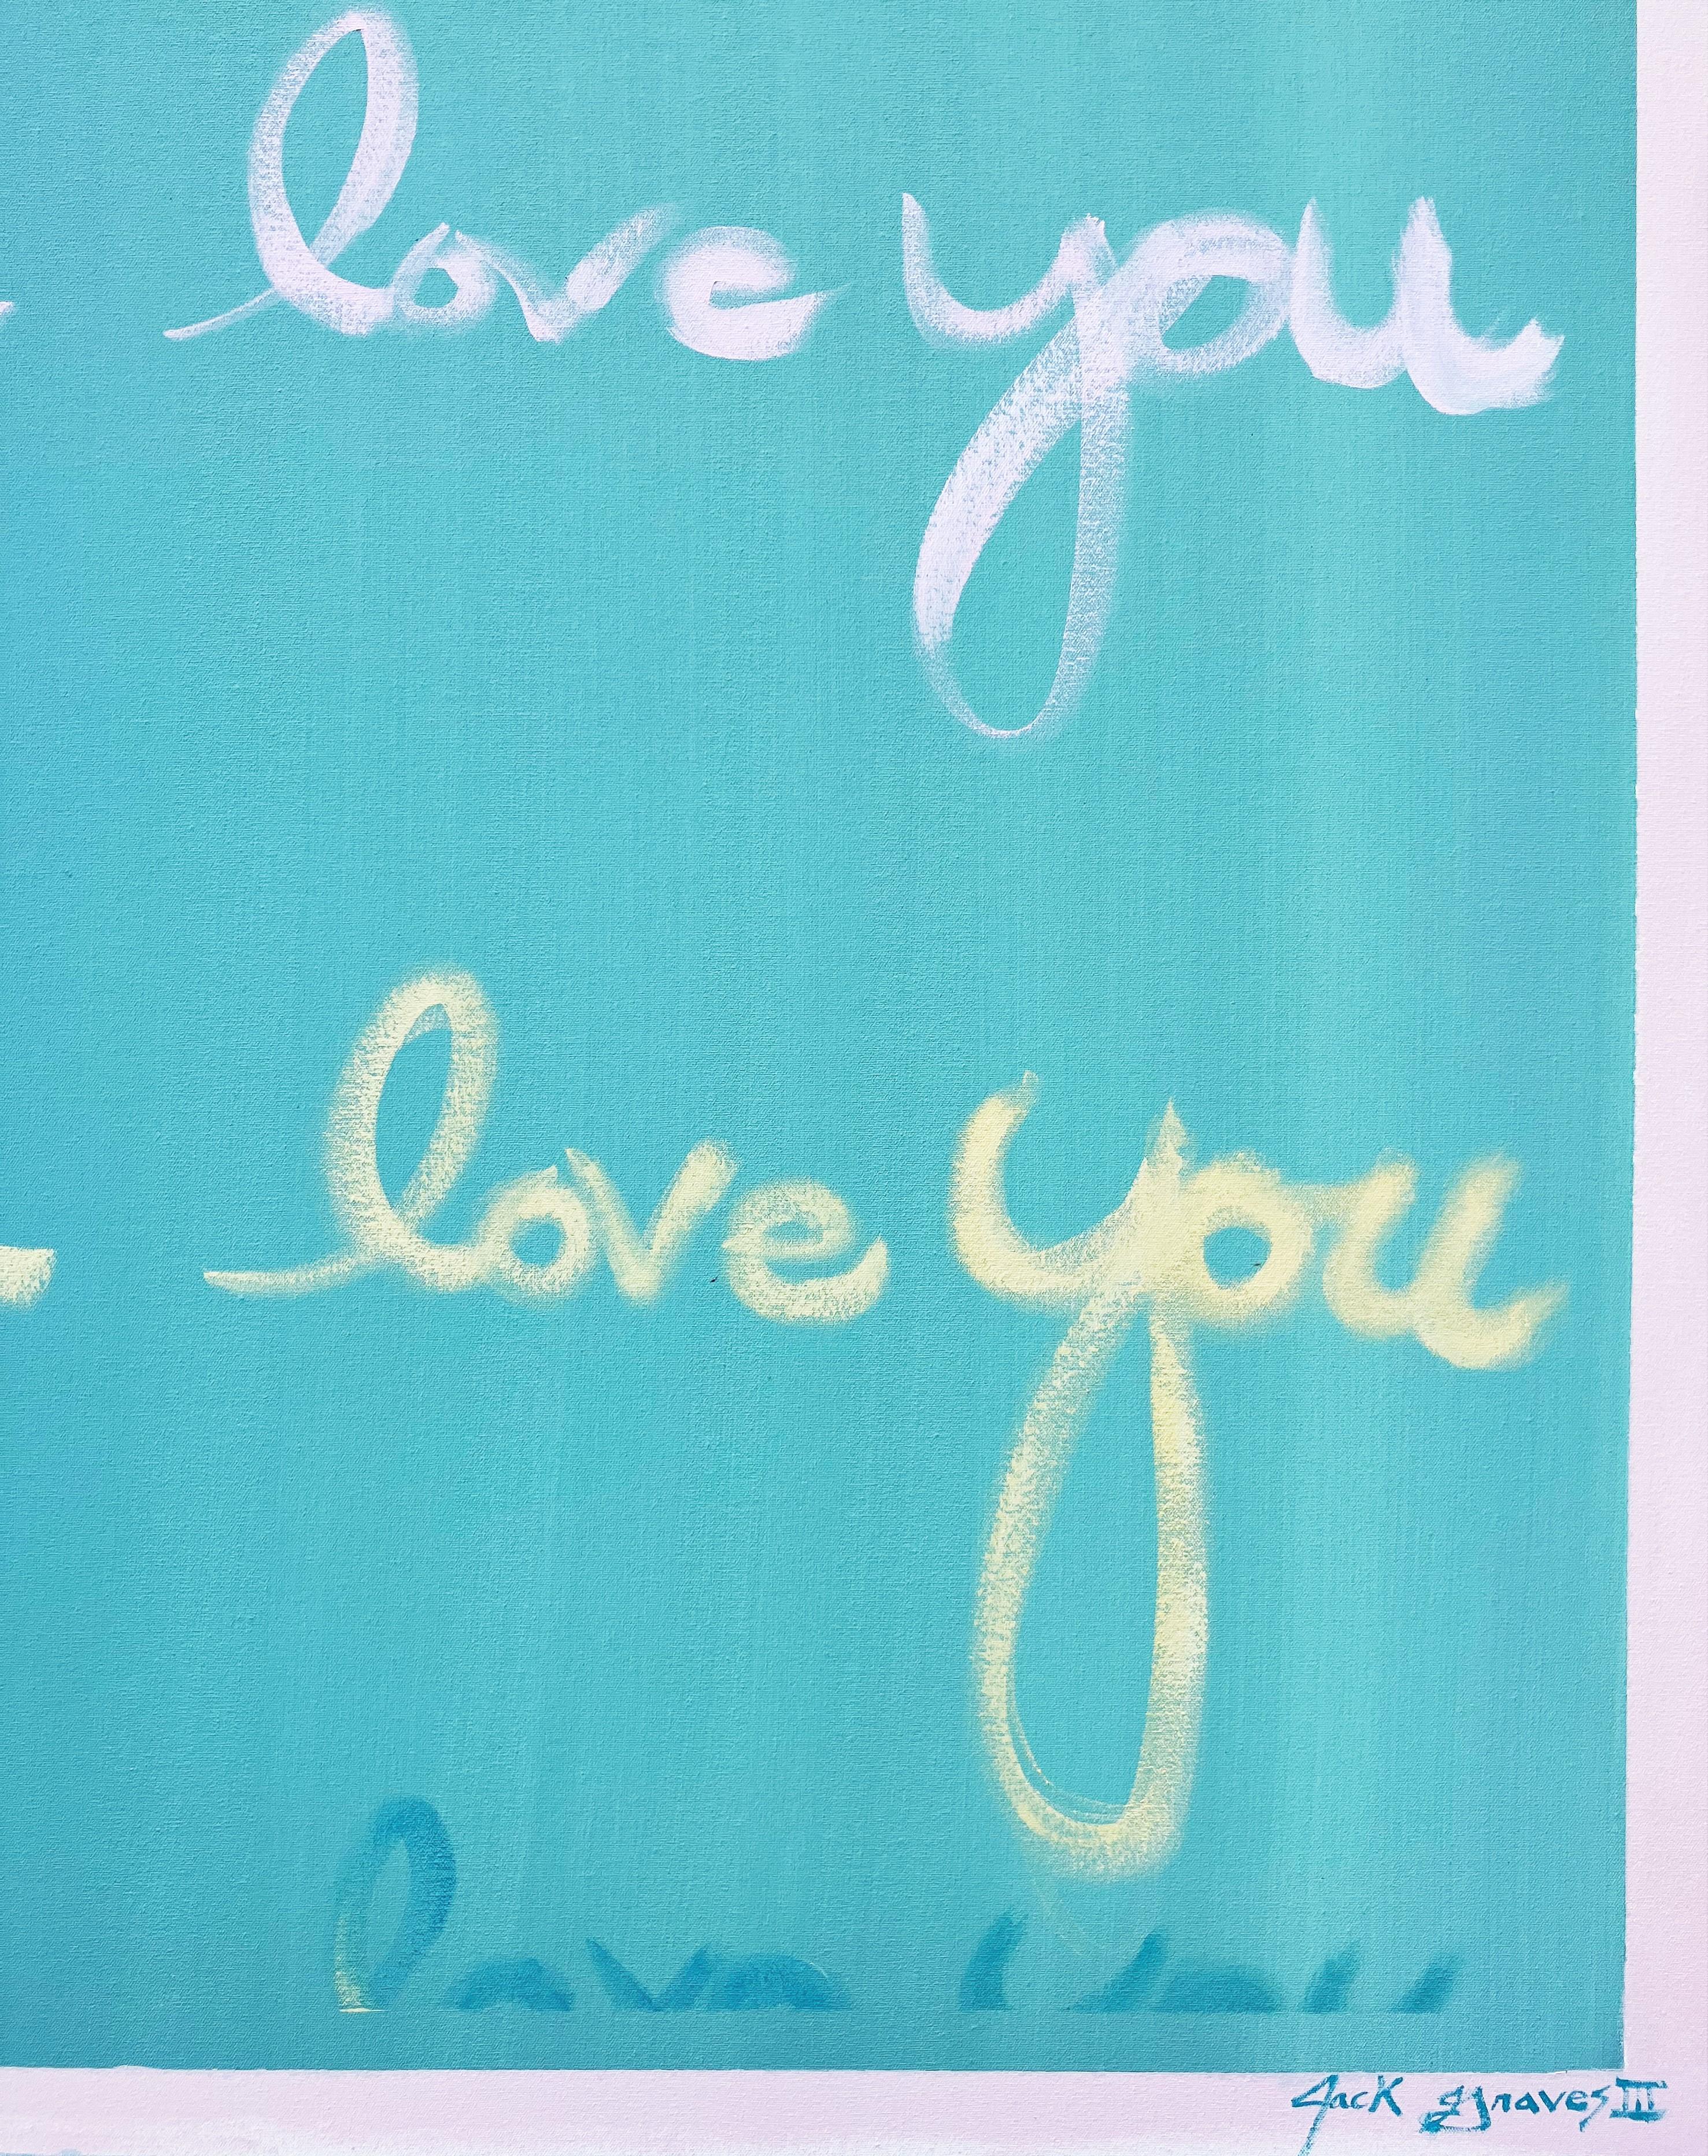 love you
love you
love you
Jack Graves III